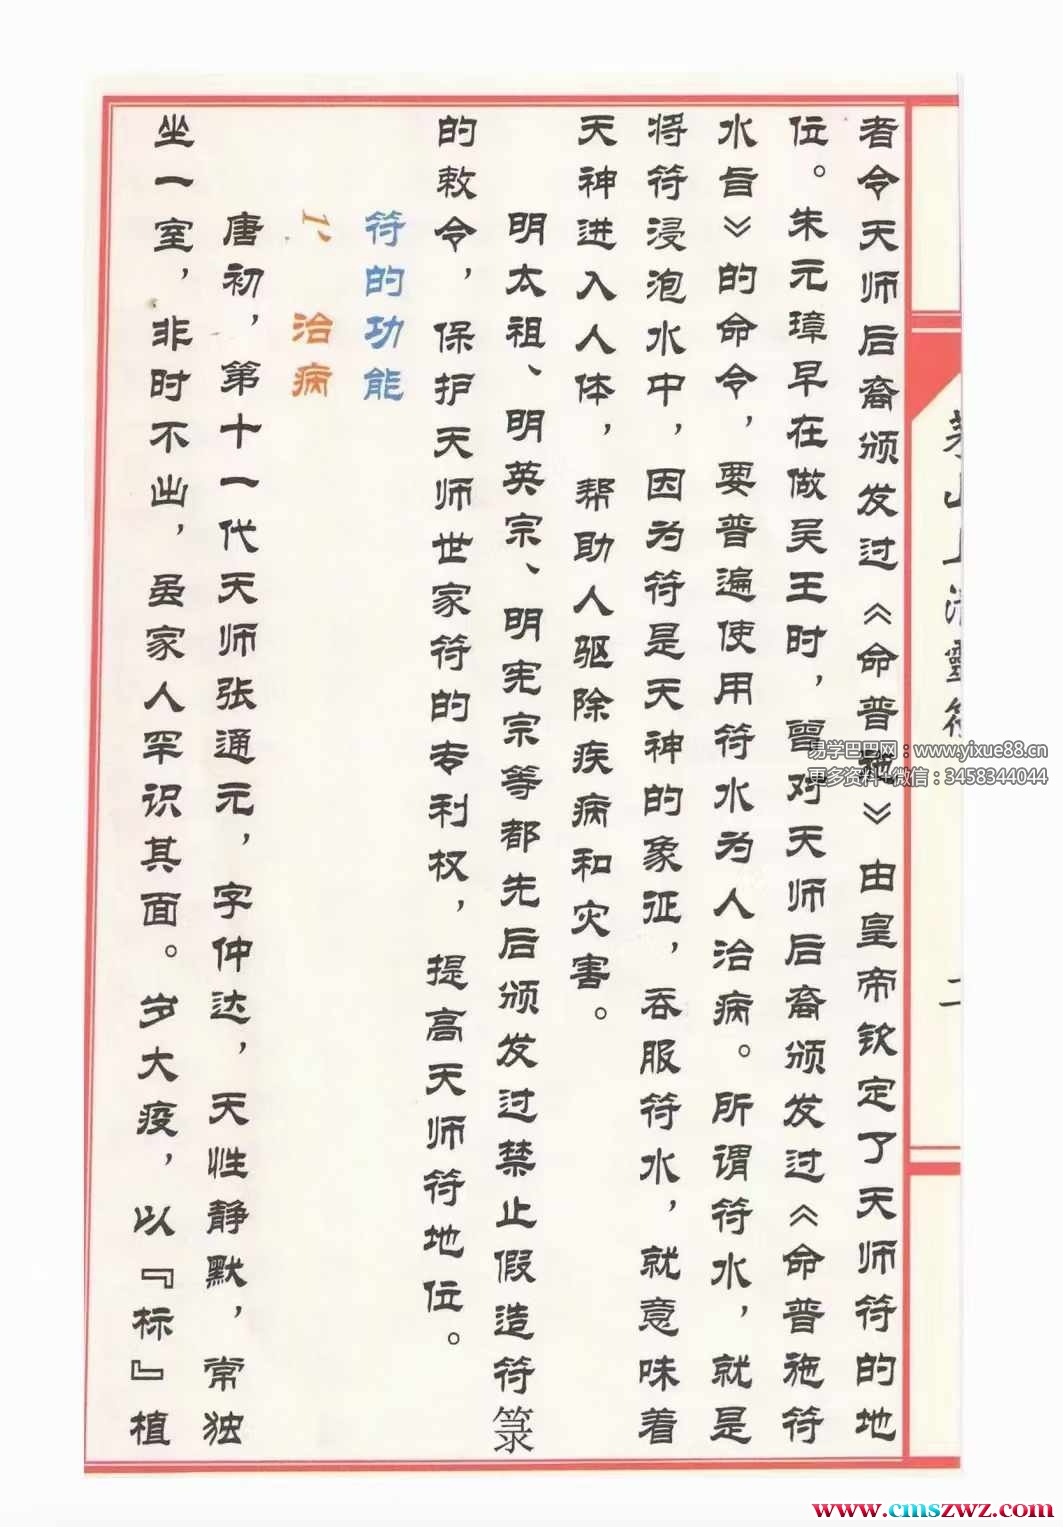 者令天师后裔颁发过《命普施》由皇帝钦定了天师符的地
位。朱元璋早在做吴王时，曾对天师后裔颁发过《命普施符
水旨》的命令，要普遍使用符水为人治病。所谓符水，就是
将符浸泡水中，因为符是天神的象征，吞服符水，就意味着
天神进入人体，帮助人驱除疾病和灾害。
明太祖、明英宗、明宪宗等都先后颁发过禁止假造符箓
的敕令，保护天师世家符的专利权，提高天师符地位。
符的功能
1、治病
唐初，第十一代天师张通元，字仲达，天性静默，常独
坐一室，非时不出，虽家人罕识其面。岁大疫，以『标』植
茅山上清靈符
二
易学巴巴网：www.yixue88.cn
更多资料+微信：3458344044
www.cmszwz.com